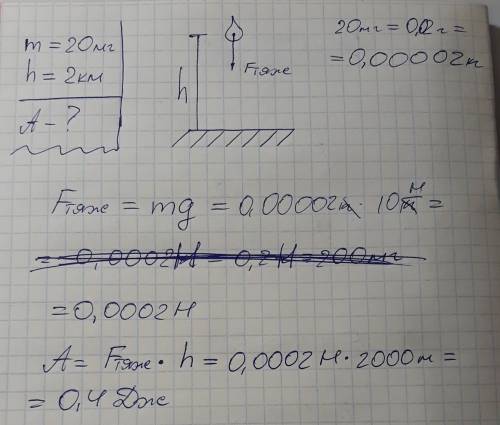 m = 20мг
h = 2км
A - ?
h
Fтяже
20мг = 0,02г =
= 0,00002кг
Fтяже = mg = 0.00002кг · 10Н/кг =
= 0,0002Н = 0,2Н = 200мг
= 0,0002Н
A = Fтяже · h = 0,0002Н · 2000м =
= 0,4 Дже